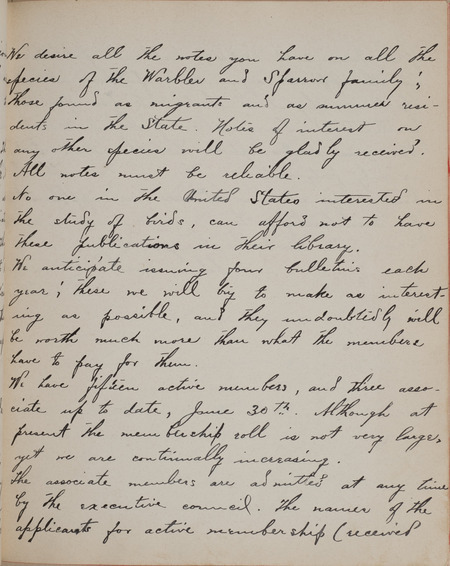 We desire all the notes you have on all the
species of the Warbler and Sparrow family;
those found as migrants and as summer resi-
dents in the State. Notes of interest on
any other species will be gladly received.
All notes must be reliable.
No one in the United States interested in
the study of birds, can afford not to have
these publications in their library.
We anticipate issuing four bulletins each
year; these we will try to make as interest-
ing as possible, and they undoubtedly will
be worth much more than what the members
have to pay for them.
We have fifteen active members, and three asso-
ciate up to date, June 30th. Although at
present the membership roll is not very large,
yet we are continually increasing.
The associate members are admitted at any time
by the executive council. The names of the
applicants for active membership (received